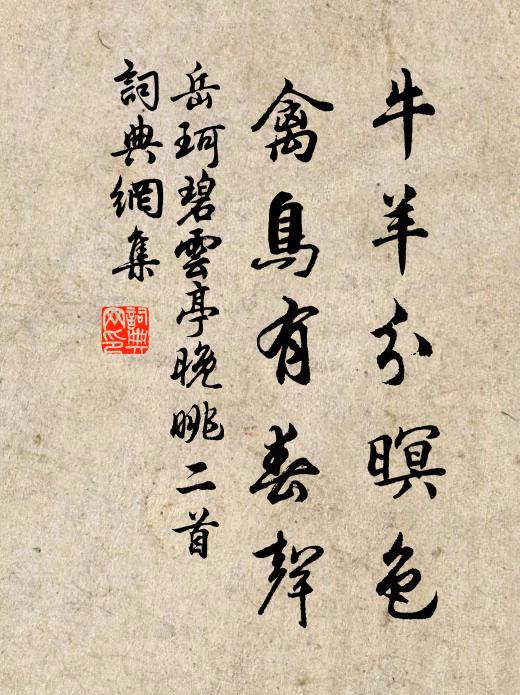 牛羊分暝色
禽鳥有春聲
岳珂碧雲亭晚眺二首
詞典網集
詞典
网印